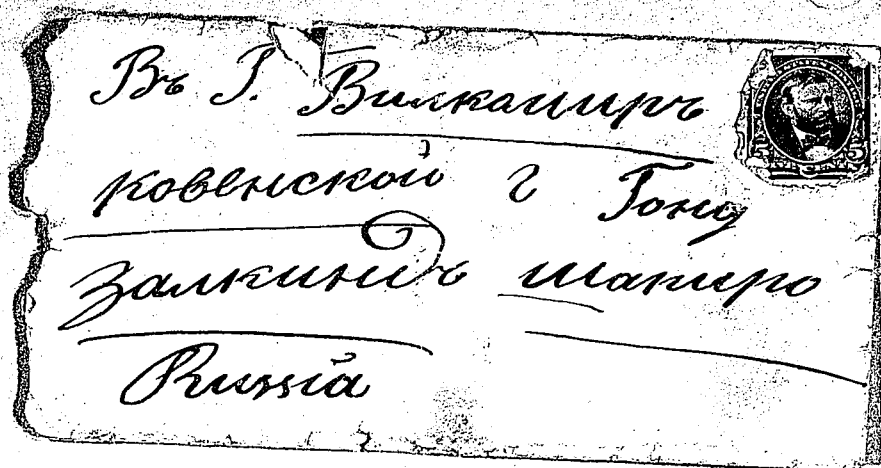 Въ Г. Вилкамиръ
Ковенской г Гону
Залкиндъ Шапиро
Russia
5 5